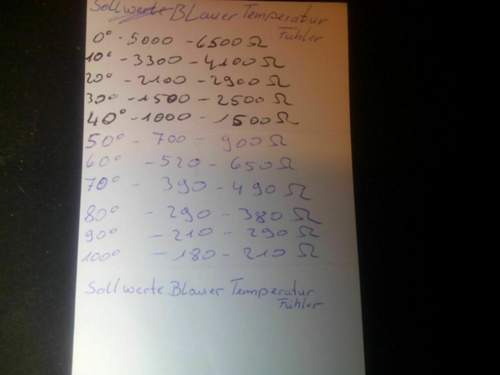 Sollwerte Blauer Temperatur
Fühler
0° - 5000 - 6500 Ω
10° - 3300 - 4100 Ω
20° - 2100 - 2900 Ω
30° - 1500 - 2500 Ω
40° - 1000 - 1500 Ω
50° - 700 - 900 Ω
60° - 520 - 650 Ω
70° - 390 - 490 Ω
80° - 290 - 380 Ω
90° - 210 - 290 Ω
100° - 180 - 210 Ω
Sollwerte Blauer Temperatur
Fühler